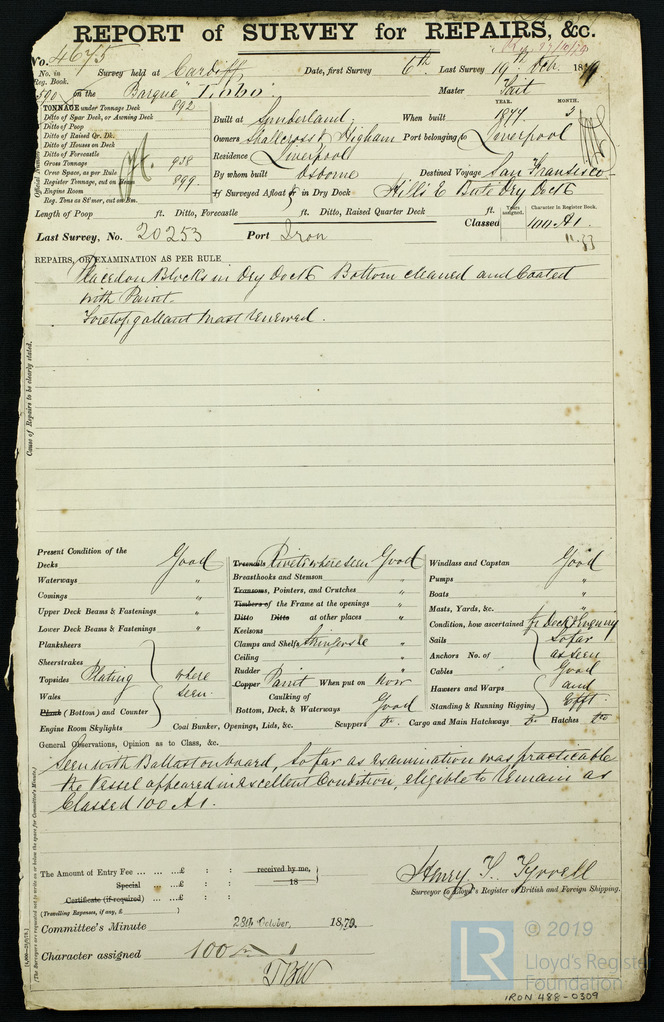 REPORT of SURVEY for REPAIRS, &c.
No. 4675
No. in Reg. Book. Survey held at Cardiff Date, first Survey 6th Last Survey 19th Oct. 1879
590 on the Barque "Tibbo Master Tait
TONNAGE under Tonnage Deck 892
Ditto of Spar Deck, or Awning Deck
Ditto of Poop
Ditto of Raised Qr. Dk.
Ditto of Houses on Deck
Ditto of Forecastle
Gross Tonnage 938
Crew Space, as per Rule
Register Tonnage, cut on Beam 899
Engine Room
Reg. Tons as St'mer, cut on Bm.
Official Number
YEAR. MONTH.
Built at Sunderland When built 1877 3
Owners Shallcross & Higham Port belonging to Liverpool
Residence Liverpool
By whom built Osborne Destined Voyage San Fransisco
If Surveyed Afloat or in Dry Dock Hills E Bute Dry Dock
Length of Poop ft. Ditto, Forecastle ft. Ditto, Raised Quarter Deck ft.
Years assigned. Character in Register Book.
Classed 100 A1.
11.83
Last Survey, No. 20253 Port Iron
REPAIRS, OR EXAMINATION AS PER RULE
Placed on Blocks in Dry Dock Bottom cleaned and Coated
with Paint.
Foretopgallant mast renewed.
Cause of Repairs to be clearly stated.
Present Condition of the
Decks Good
Waterways "
Comings "
Upper Deck Beams & Fastenings "
Lower Deck Beams & Fastenings "
Planksheers
Sheerstrakes
Topsides Plating where
Wales seen
Plank (Bottom) and Counter
Engine Room Skylights
Treenails Rivets where seen Good
Breasthooks and Stemson "
Transoms, Pointers, and Crutches "
Timbers of the Frame at the openings "
Ditto Ditto at other places "
Keelsons "
Clamps and Shelfs Stringers &c "
Ceiling "
Rudder "
Copper Paint When put on Now
Caulking of
Bottom, Deck, & Waterways Good
Windlass and Capstan Good
Pumps "
Boats "
Masts, Yards, &c. "
Condition, how ascertained fr Deck &
Sails So far
Anchors No. of as seen
Cables Good
Hawsers and Warps and
Standing & Running Rigging Efft.
Coal Bunker, Openings, Lids, &c. Scuppers do. Cargo and Main Hatchways do Hatches do
General Observations, Opinion as to Class, &c.
Seen with Ballast on board, So far as examination was practicable
the Vessel appeared in excellent Condition, eligible to remain as
Classed 100 A1.
The Amount of Entry Fee £ : : received by me,
Special £ : : 18
Certificate (if required) £ : :
(Travelling Expenses, if any, £ )
Henry T. Tyrrell
Surveyor to Lloyd's Register of British and Foreign Shipping.
Committee's Minute 28th October, 1879.
Character assigned 100 A 1
(The Surveyors are requested not to write on or below the space for Committee's Minute.)
LR
© 2019
Lloyd's Register
Foundation
IRON 488-0309